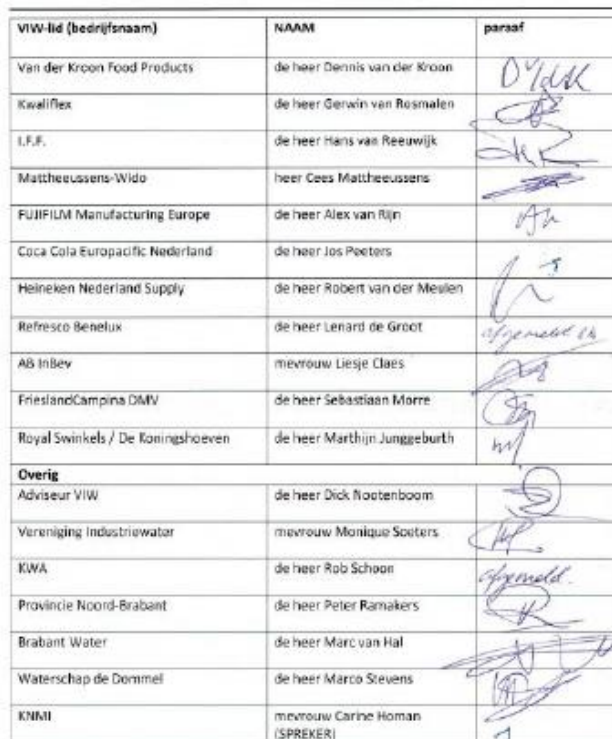 VIW-lid (bedrijfsnaam) NAAM paraaf
Van der Kroon Food Products de heer Dennis van der Kroon
Kwaliflex de heer Gerwin van Rosmalen
I.F.F. de heer Hans van Reeuwijk
Mattheeussens-Wido heer Cees Mattheeussens
FUJIFILM Manufacturing Europe de heer Alex van Rijn
Coca Cola Europacific Nederland de heer Jos Peeters
Heineken Nederland Supply de heer Robert van der Meulen
Refresco Benelux de heer Lenard de Groot afgemeld
AB InBev mevrouw Liesje Claes
FrieslandCampina DMV de heer Sebastiaan Morre
Royal Swinkels / De Koningshoeven de heer Marthijn Junggeburth
Overig
Adviseur VIW de heer Dick Nootenboom
Vereniging Industriewater mevrouw Monique Soeters
KWA de heer Rob Schoon afgemeld.
Provincie Noord-Brabant de heer Peter Ramakers
Brabant Water de heer Marc van Hal
Waterschap de Dommel de heer Marco Stevens
KNMI mevrouw Carine Homan
(SPREKER)